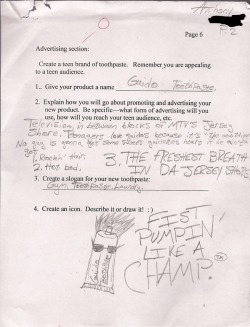 Anthony
P.2
Page 6
Advertising section:
Create a teen brand of toothpaste. Remember you are appealing
to a teen audience.
1. Give your product a name Guido Toothpaste.
2. Explain how you will go about promoting and advertising your
new product. Be specific—what form of advertising will you
use, how will you reach your teen audience, etc.
Television, in between blocks of MTV's Jersey
Shore. Teenagers like guidos because it's
No guy is gonna get some sweet guidettes
got
1. Rockin' Hair.
2. Hot bod.
3. THE FRESHEST BREATH
IN DA JERSEY SHORE
3. Create a slogan for your new toothpaste:
Gym, Toothpaste, Laundry
4. Create an icon. Describe it or draw it! :)
FIST
PUMPIN'
LIKE A
CHAMP.
TM
Guido
Toothpaste